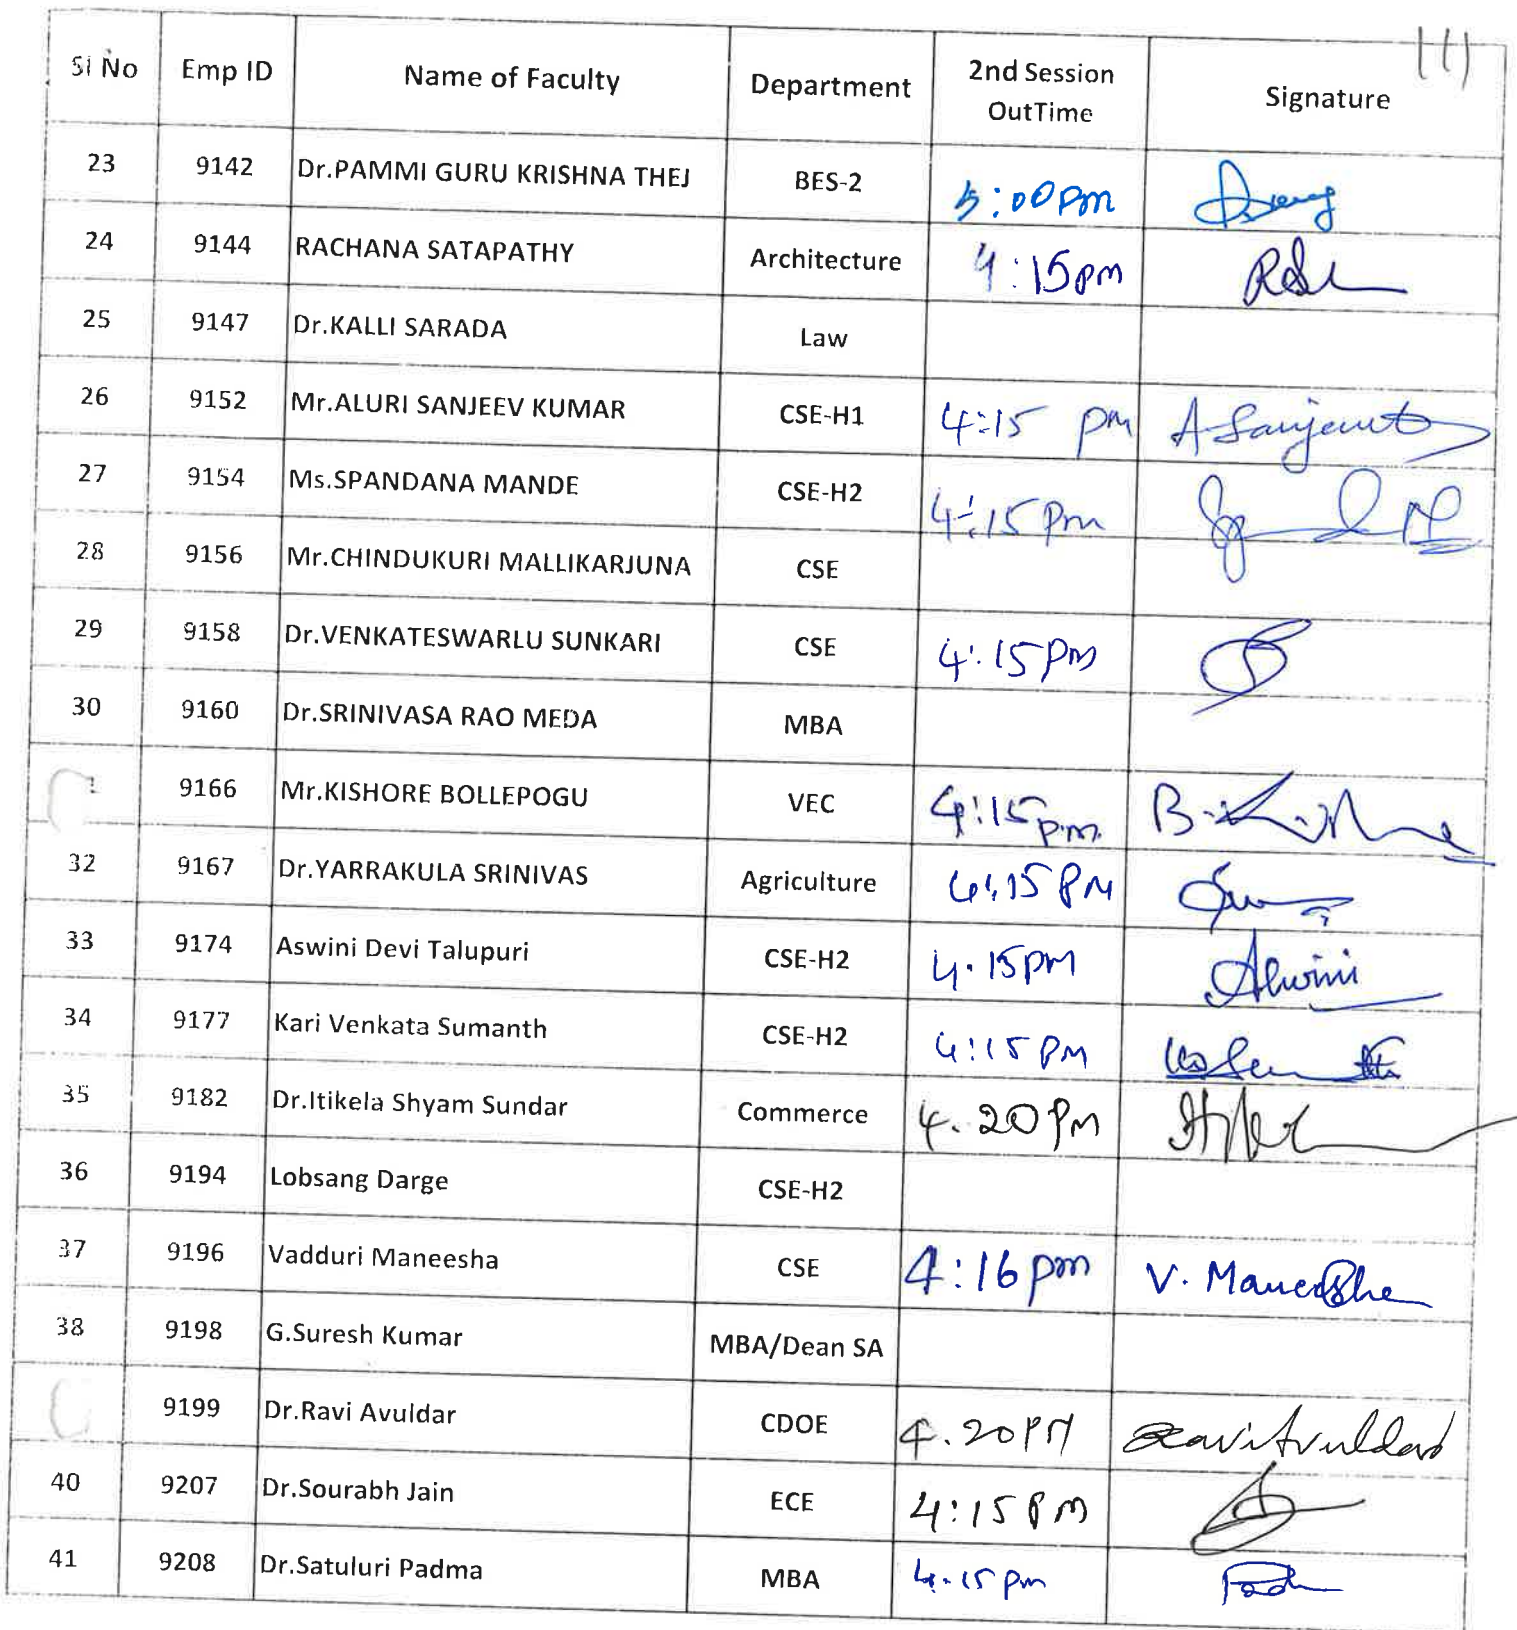 Sl No Emp ID Name of Faculty Department 2nd Session OutTime Signature
23 9142 Dr.PAMMI GURU KRISHNA THEJ BES-2 5:00pm
24 9144 RACHANA SATAPATHY Architecture 4:15pm
25 9147 Dr.KALLI SARADA Law
26 9152 Mr.ALURI SANJEEV KUMAR CSE-H1 4:15 pm
27 9154 Ms.SPANDANA MANDE CSE-H2 4:15 pm
28 9156 Mr.CHINDUKURI MALLIKARJUNA CSE
29 9158 Dr.VENKATESWARLU SUNKARI CSE 4:15pm
30 9160 Dr.SRINIVASA RAO MEDA MBA
9166 Mr.KISHORE BOLLEPOGU VEC 4:15p.m.
32 9167 Dr.YARRAKULA SRINIVAS Agriculture 4:15 PM
33 9174 Aswini Devi Talupuri CSE-H2 4.15PM Aswini
34 9177 Kari Venkata Sumanth CSE-H2 4:15 PM
35 9182 Dr.Itikela Shyam Sundar Commerce 4.20 Pm
36 9194 Lobsang Darge CSE-H2
37 9196 Vadduri Maneesha CSE 4:16 pm V. Maneesha
38 9198 G.Suresh Kumar MBA/Dean SA
9199 Dr.Ravi Avuldar CDOE 4.20PM Ravi Avuldar
40 9207 Dr.Sourabh Jain ECE 4:15 PM
41 9208 Dr.Satuluri Padma MBA 4.15 pm